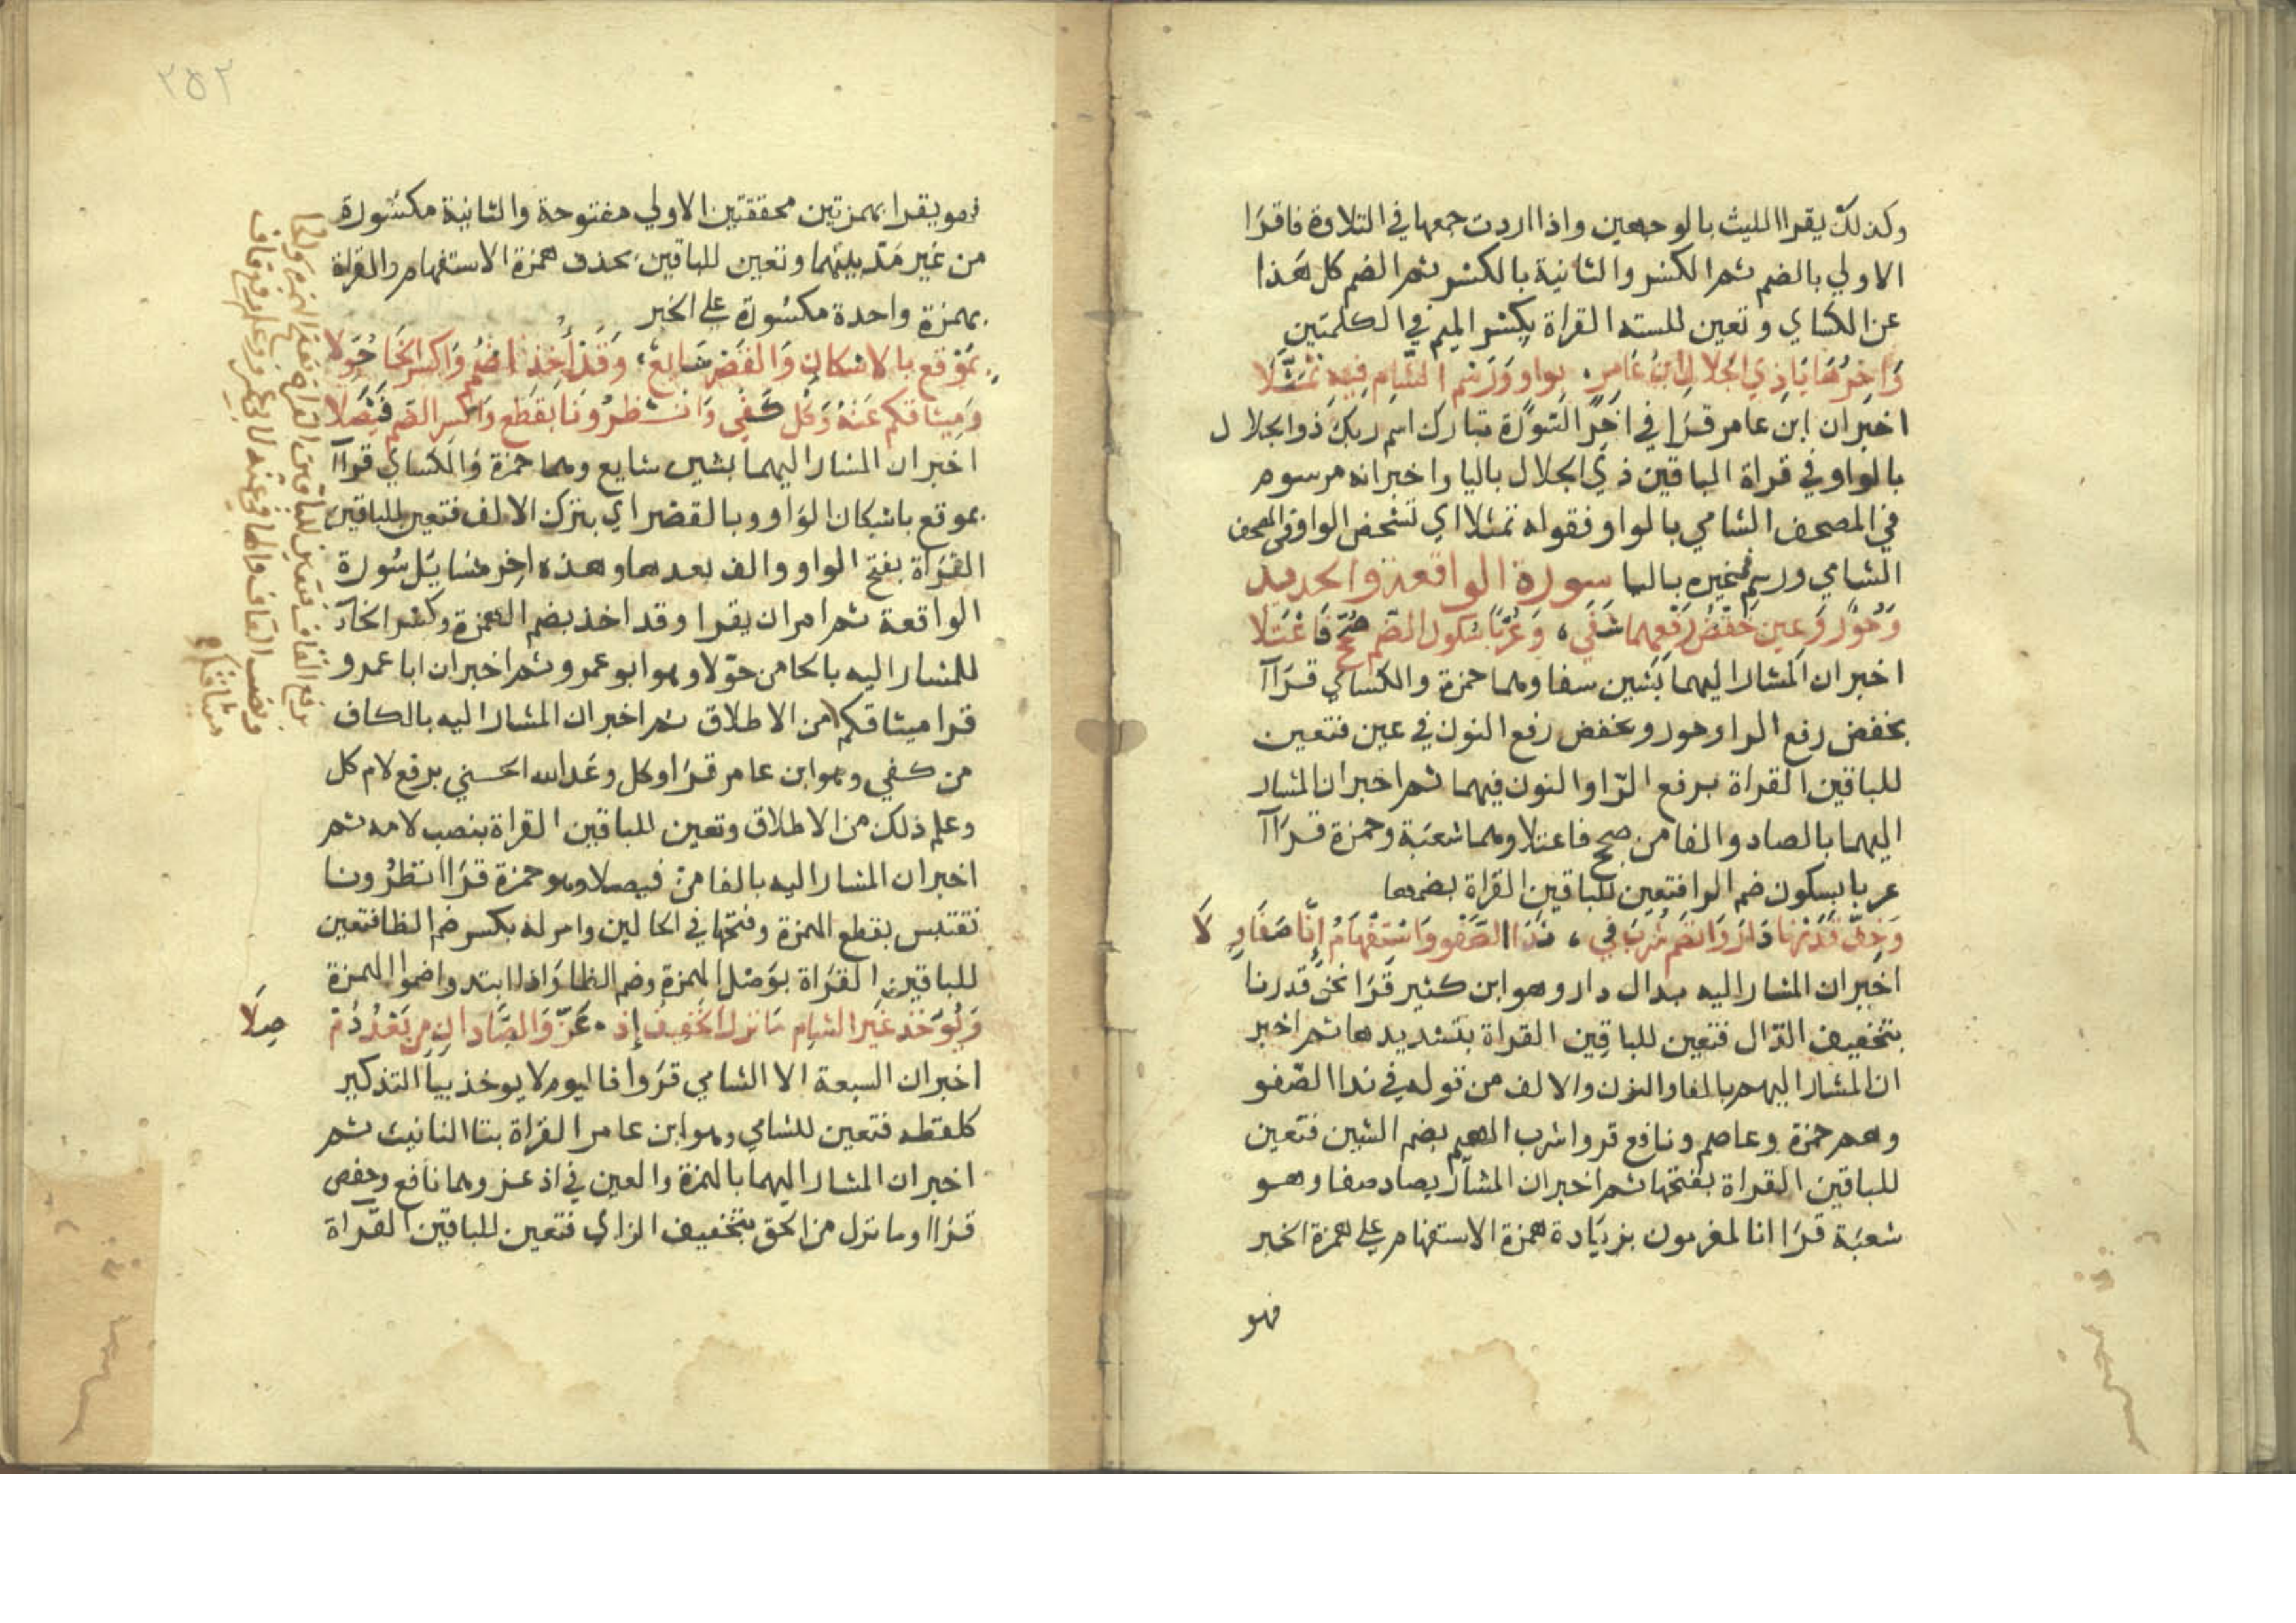 وكذلك يقرا الليث بالوجهين واذا اردت جمعها في التلاوة فاقرا
الاولي بالضم ثم الكسر والثانية بالكسر ثم الضم كل هذا
عن الكساي وتعين للسته القراة بكسر الميم في الكلمتين
وَاخِرُهَا يَا ذِي الجَلَالِ ابْنُ عَامِرٍ بواو وَرَسْم الشَّامِ فِيهِ تَمَثَّلَا
اخبر ان ابن عامر قرا في اخر السورة تبارك اسم ربك ذو الجلال
بالواو في قراة الباقين ذي الجلال باليا واخبر انه مرسوم
في المصحف الشامي بالواو فقوله تمثلا اي تشخص الواو في المصحف
الشامي ورسم في غيره باليا سورة الواقعة والحديد
وَحُورٌ وَعِينٌ خَفْضُ رَفْعِهِمَا شَفَي وَعُرْبًا سُكُونُ الضَّمِ صُحِّحَ فَاعْتَلَا
اخبر ان المشار اليهما بشين شفا وهما حمزة والكساي قراآ
بخفض رفع الرا وحور وبخفض رفع النون في عين فتعين
للباقين القراة برفع الرا والنون فيهما ثم اخبر ان المشار
اليهما بالصاد والفا من صحح فاعتلا وهما شعبة وحمزة قراآ
عربا بسكون ضم الرا فتعين للباقين القراة بضمها
وَخِفُّ قَدَرْنَا دَارَ وَانْضَمَّ شُرْبَ فِي نَدَا الصَّفْوِ وَاسْتِفْهَامُ إِنَّا صَفَا وِلَا
اخبر ان المشار اليه بدال دار وهو ابن كثير قرا نحن قدرنا
بتخفيف الدال فتعين للباقين القراة بتشديدها ثم اخبر
ان المشار اليهم بالفا والنون والالف من قوله في ندا الصفو
وهم حمزة وعاصم ونافع قروا شرب الهيم بضم الشين فتعين
للباقين القراة بفتحها ثم اخبر ان المشار بصاد صفا وهو
شعبة قرا انا لمغرمون بزيادة همزة الاستفهام علي همزة الخبر
فهو
٢٥٢
فهو يقرا بهمزتين محققتين الاولي مفتوحة والثانية مكسورة
من غير مد بينهما وتعين للباقين بحذف همزة الاستفهام والقراة
بهمزة واحدة مكسورة علي الخبر
بمَوْقِع بالاسْكانِ وَالقَصْرِ شَايِعٌ وَقَدْ أُخِذَ اضْمُمْ وَاكْسِرِ الخَاءَ حُوَّلَا
وَمِيثَاقكم عَنْهُ وَكُلٌّ كَفَي وَانْظِرُونَا بِقَطْعٍ وَاكْسِرِ الضَّم فَيْصَلَا
اخبر ان المشار اليهما بشين شايع وهما حمزة والكساي قراآ
بموقع باسكان الواو وبالقصر اي بترك الالف فتعين للباقين
القراة بفتح الواو والف بعدها وهذه اخر مسايل سورة
الواقعة ثم امر ان يقرا وقد اخذ بضم الهمزة وكسر الخآ
للمشار اليه بالحا من حولا وهو ابو عمرو ثم اخبر ان ابا عمرو
قرا ميثاقكم من الاطلاق ثم اخبر ان المشار اليه بالكاف
من كفي وهو ابن عامر قرا وكل وعد الله الحسني برفع لام كل
وعلم ذلك من الاطلاق وتعين للباقين القراة بنصب لامه ثم
اخبر ان المشار اليه بالفا من فيصلا وهو حمزة قرا انظرونا
نقتبس بقطع الهمزة وفتحها في الحالين وامر له بكسر ضم الظا فتعين
للباقين القراة بوصل الهمزة وضم الظا واذا ابتدوا ضموا الهمزة
وَيُوْخَذ غَيْرُ الشَّامِ مَا نزلَ الخَفِيفُ إِذْ عَزَّ وَالصَّادَانِ مِن بَعْدُ دُمْ صِلَا
اخبر ان السبعة الا الشامي قروا فاليوم لا يوخذ بيا التذكير
كلفظه فتعين للشامي وهو ابن عامر القراة بتا التانيث ثم
اخبر ان المشار اليهما بالهمزة والعين في اذ عز وهما نافع وحفص
قراا وما نزل من الحق بتخفيف الزاي فتعين للباقين القراة
ميثاقكم